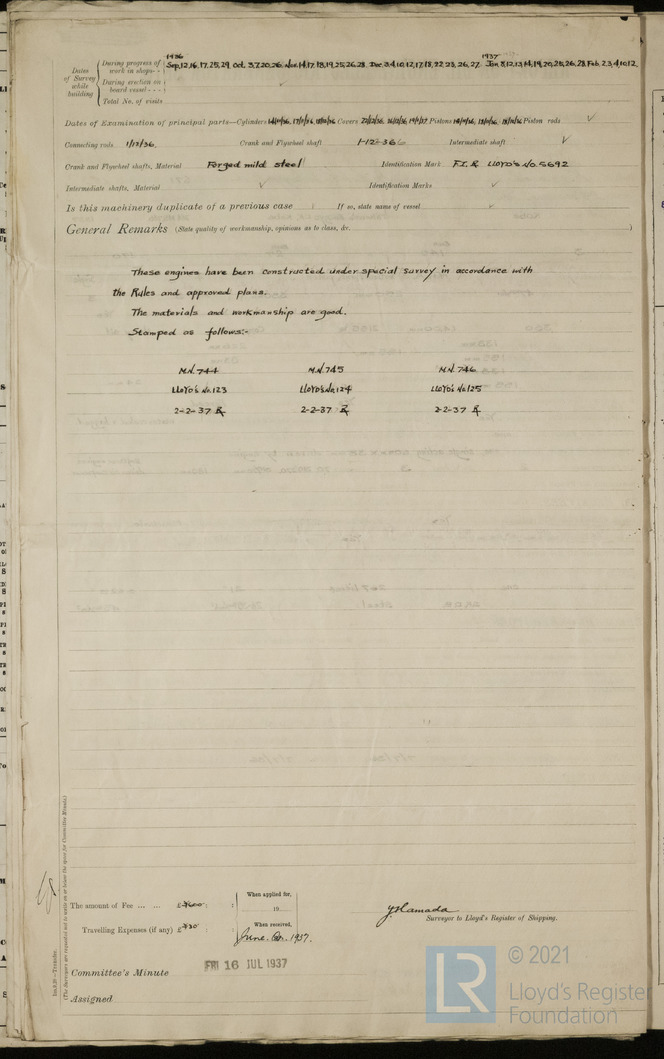 1936
1937
Dates of Survey while building
During progress of work in shops - -
Sep, 12, 16, 17, 25, 29 Oct, 3, 7, 20, 26. Nov. 14, 17, 18, 19, 25, 26, 28. Dec. 3, 4, 10, 12, 17, 18, 22, 23, 26, 27. Jan. 8, 12, 13, 14, 19, 20, 25, 26, 28 Feb. 2, 3, 4, 10, 12.
During erection on board vessel - - -
Total No. of visits
Dates of Examination of principal parts—Cylinders Covers Pistons Piston rods ✓
Connecting rods 1/12/36, Crank and Flywheel shaft 1-12-36 Intermediate shaft ✓
Crank and Flywheel shafts, Material Forged mild steel Identification Mark LLOYD'S No. 5692
Intermediate shafts, Material ✓ Identification Marks ✓
Is this machinery duplicate of a previous case If so, state name of vessel ✓
General Remarks (State quality of workmanship, opinions as to class, &c. )
These engines have been constructed under special survey in accordance with
the Rules and approved plans.
The materials and workmanship are good.
Stamped as follows:-
M.N. 744 M.N. 745 M.N. 746
LLOYD'S No. 123 LLOYD'S No. 124 LLOYD'S No. 125
2-2-37 2-2-37 2-2-37
The amount of Fee ... ... £ : :
When applied for,
19
Travelling Expenses (if any) £ : :
When received,
June. 1937.
Y. Hamada
Surveyor to Lloyd's Register of Shipping.
FRI 16 JUL 1937
Committee's Minute
Assigned
(The Surveyors are requested not to write on or below the space for Committee Minute.)
© 2021
Lloyd's Register
Foundation
LR